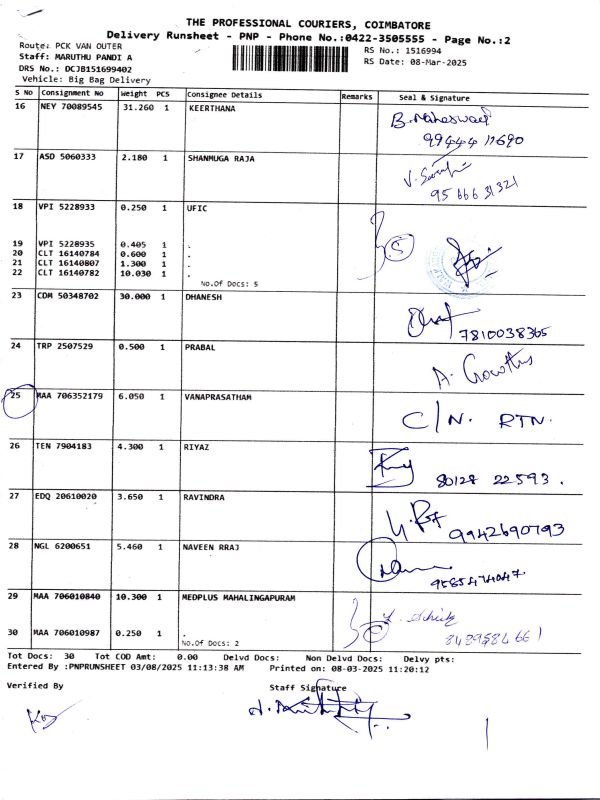 THE PROFESSIONAL COURIERS, COIMBATORE
Delivery Runsheet - PNP - Phone No.:0422-3505555 - Page No.:2
Route: PCK VAN OUTER
RS No.: 1516994
Staff: MARUTHU PANDI A
RS Date: 08-Mar-2025
DRS No.: DCJB151699402
Vehicle: Big Bag Delivery
S No Consignment No Weight PCS Consignee Details Remarks Seal & Signature
16 NEY 70089545 31.260 1 KEERTHANA
B. Maheswari
99444 11690
17 ASD 5060333 2.180 1 SHANMUGA RAJA
95666 31321
18 VPI 5228933 0.250 1 UFIC
19 VPI 5228935 0.405 1 .
20 CLT 16140784 0.600 1 .
21 CLT 16140807 1.300 1 .
22 CLT 16140782 10.030 1 .
No.Of Docs: 5
5
23 CDM 50348702 30.000 1 DHANESH
7810038365
24 TRP 2507529 0.500 1 PRABAL
25 MAA 706352179 6.050 1 VANAPRASATHAM
C/N. RTN.
26 TEN 7904183 4.300 1 RIYAZ
80128 22593.
27 EDQ 20610020 3.650 1 RAVINDRA
9942690793
28 NGL 6200651 5.460 1 NAVEEN RRAJ
29 MAA 706010840 10.300 1 MEDPLUS MAHALINGAPURAM
30 MAA 706010987 0.250 1 .
No.Of Docs: 2
Tot Docs: 30 Tot COD Amt: 0.00 Delvd Docs: Non Delvd Docs: Delvy pts:
Entered By :PNPRUNSHEET 03/08/2025 11:13:38 AM Printed on: 08-03-2025 11:20:12
Verified By Staff Signature